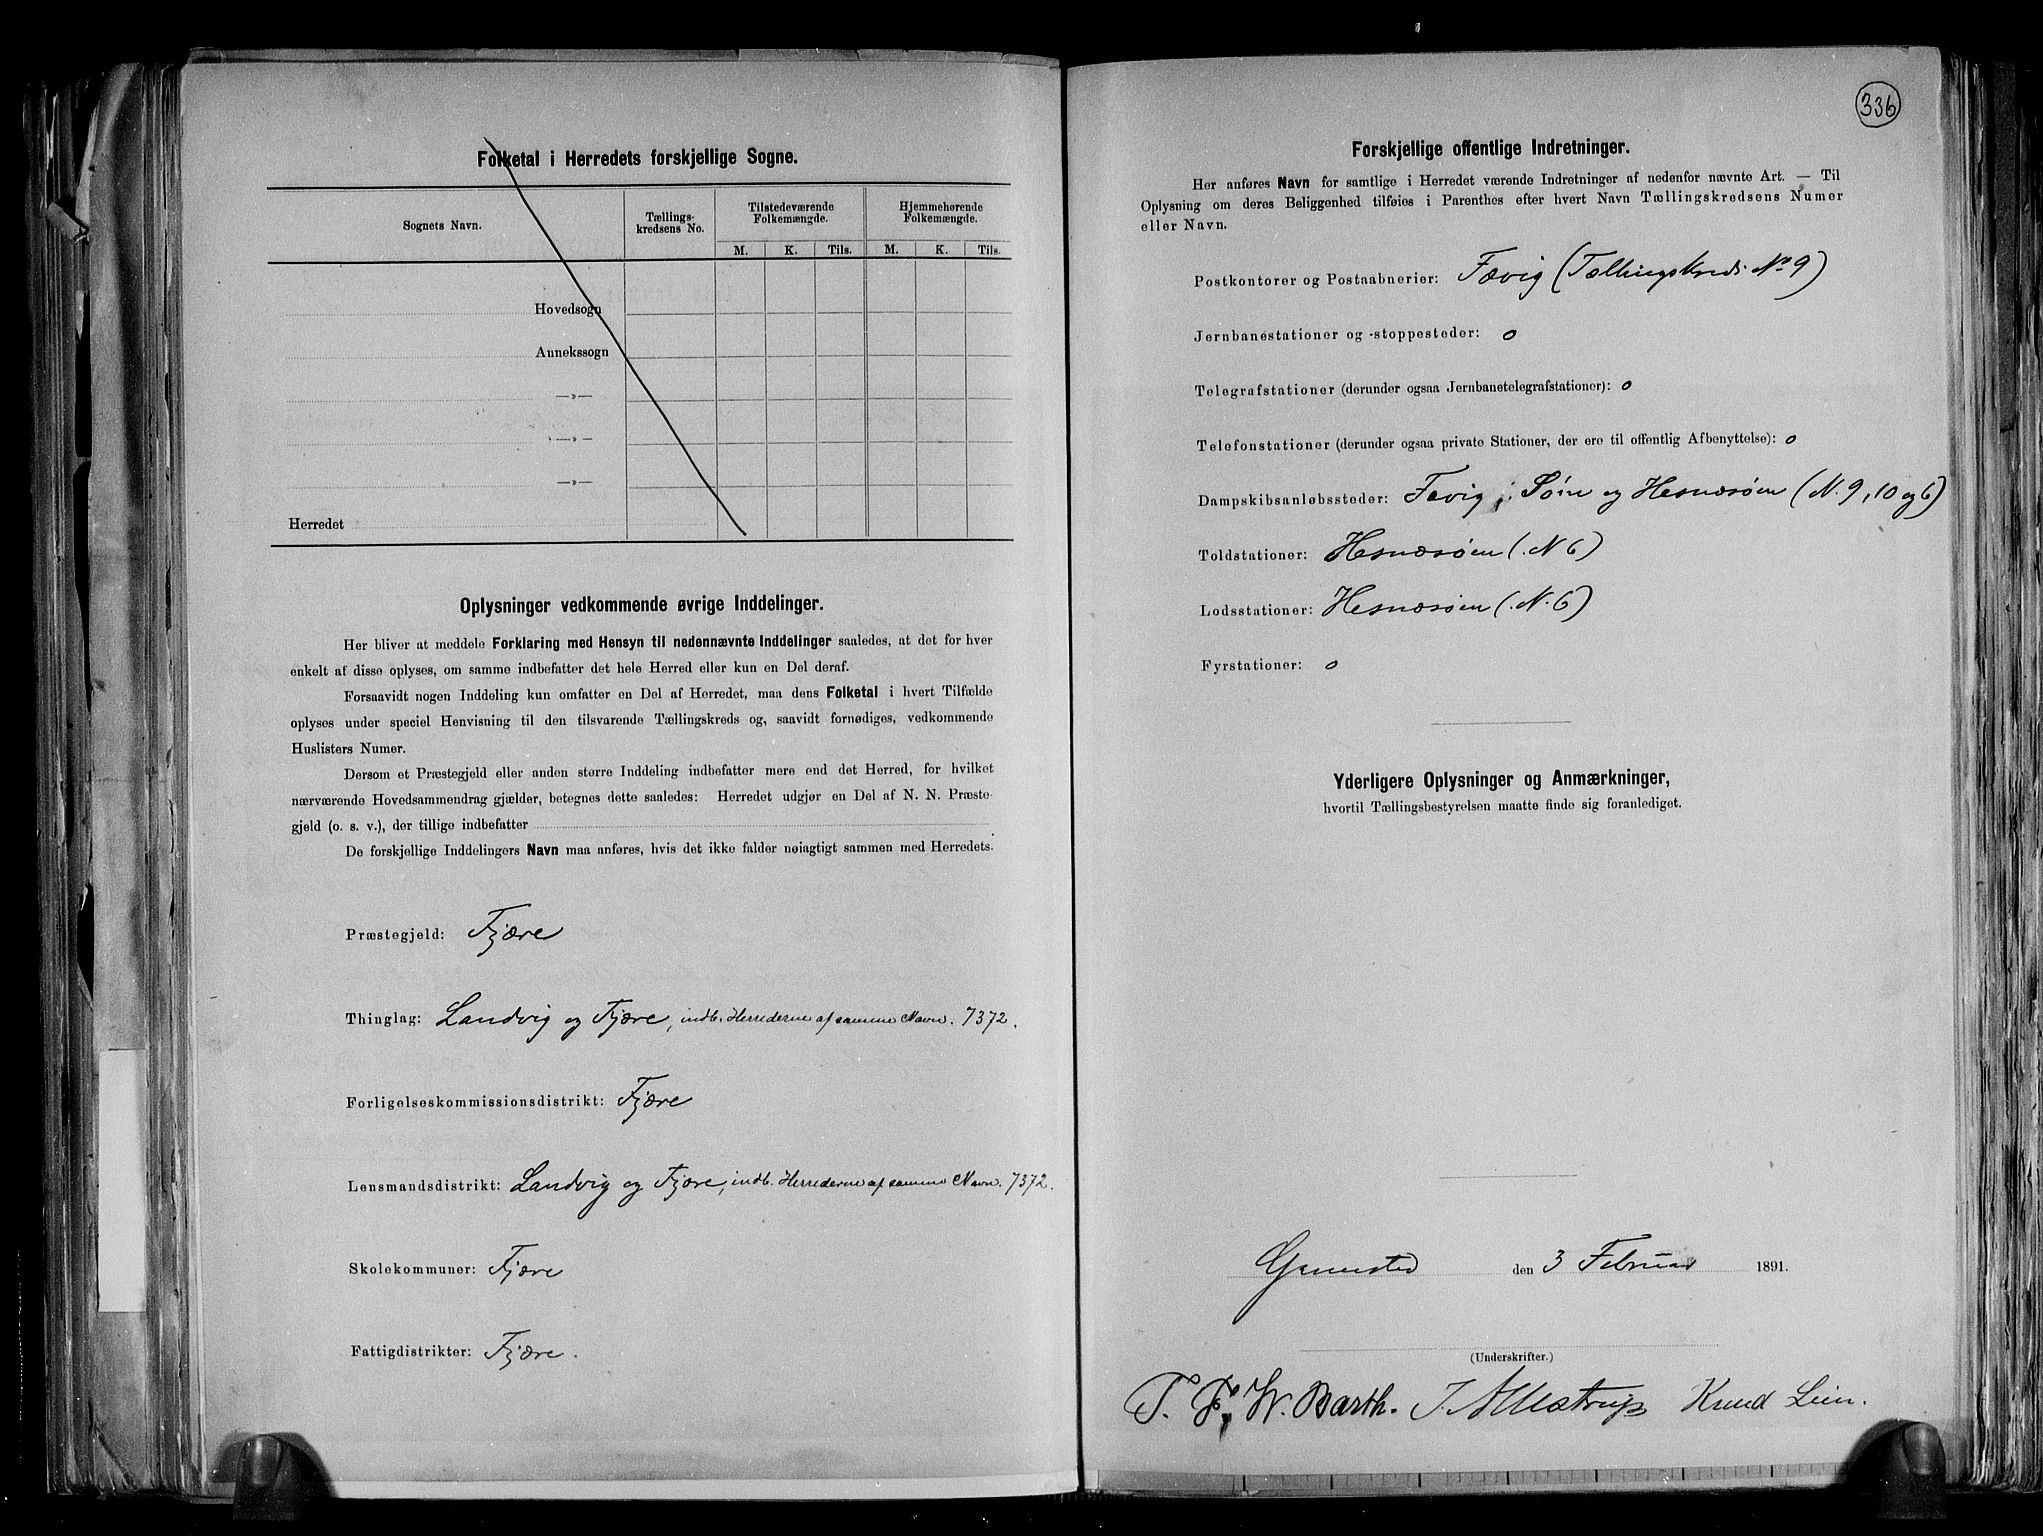 Folketal i Herredets forskjellige Sogne.
Sognets Navn.
Tællings-
kredsens No.
Tilstedeværende
Folkemængde.
Hjemmehørende
Folkemængde.
M. K. Tils. M. K. Tils.
Hovedsogn
Annekssogn
—„—
—„—
—„—
Herredet
Oplysninger vedkommende øvrige Inddelinger.
Her bliver at meddele Forklaring med Hensyn til nedennævnte Inddelinger saaledes, at det for hver
enkelt af disse oplyses, om samme indbefatter det hele Herred eller kun en Del deraf.
Forsaavidt nogen Inddeling kun omfatter en Del af Herredet, maa dens Folketal i hvert Tilfælde
oplyses under speciel Henvisning til den tilsvarende Tællingskreds og, saavidt fornødiges, vedkommende
Huslisters Numer.
Dersom et Præstegjeld eller anden større Inddeling indbefatter mere end det Herred, for hvilket
nærværende Hovedsammendrag gjælder, betegnes dette saaledes: Herredet udgjør en Del af N. N. Præste-
gjeld (o. s. v.), der tillige indbefatter
De forskjellige Inddelingers Navn maa anføres, hvis det ikke falder nøiagtigt sammen med Herredets.
Præstegjeld: Fjære
Thinglag: Landvig og Fjære, indb. Herrederne af samme Navn. 7372.
Forligelseskommissionsdistrikt: Fjære
Lensmandsdistrikt: Landvig og Fjære, indb. Herrederne af samme Navn. 7372.
Skolekommuner: Fjære
Fattigdistrikter: Fjære.
336
Forskjellige offentlige Indretninger.
Her anføres Navn for samtlige i Herredet værende Indretninger af nedenfor nævnte Art. — Til
Oplysning om deres Beliggenhed tilføies i Parenthes efter hvert Navn Tællingskredsens Numer
eller Navn.
Postkontorer og Postaabnerier: Fævig (Tællingskreds No 9)
Jernbanestationer og -stoppesteder: 0
Telegrafstationer (derunder ogsaa Jernbanetelegrafstationer): 0
Telefonstationer (derunder ogsaa private Stationer, der ere til offentlig Afbenyttelse): 0
Dampskibsanløbssteder: Fevig, og Hesnæsøen (N. 9, 10 og 6)
Toldstationer: Hesnæsøen (N 6)
Lodsstationer: Hesnæsøen (N. 6)
Fyrstationer: 0
Yderligere Oplysninger og Anmærkninger,
hvortil Tællingsbestyrelsen maatte finde sig foranlediget.
den 3 Februar 1891.
(Underskrifter.)
T. F. W. Barth. J. Allestrup Knud Leien.